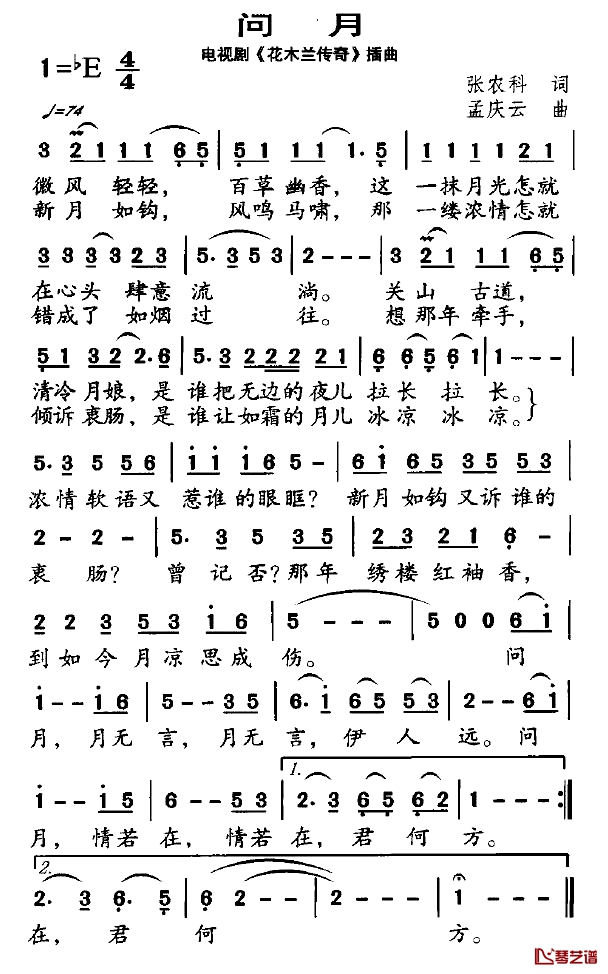 问 月
电视剧《花木兰传奇》插曲
1=♭E 4/4
张农科 词
♩=74
孟庆云 曲
3 2 1 1 1 6 5 | 5 1 1 1 1. 5 | 1 1 1 1 1 2 1 |
微风 轻轻, 百草幽香, 这 一抹月光怎就
新月 如钩, 风鸣马啸, 那 一缕浓情怎就
3 3 3 3 3 2 3 | 5. 3 5 3 | 2 - - - | 3 2 1 1 1 6 5 |
在心头 肆意 流 淌。 关山 古道,
错成了 如烟 过 往。 想那年 牵手,
5 1 3 2 2. 6 | 5. 3 2 2 2 2 1 | 6 6 5 6 1 | 1 - - - |
清冷月娘, 是谁把无边的夜儿拉长 拉长。
倾诉衷肠, 是谁让如霜的月儿冰凉 冰凉。
5. 3 5 5 6 | 1 1 1 6 5 | 5. 3 3 5 3 5 5 3 |
浓情软语又 惹谁的眼眶? 新月如钩又诉谁的
2 - 2 - | 5. 3 5 3 5 | 2 3 2 1 6 |
衷 肠? 曾记否?那年 绣楼红袖香,
2 2 3 5 3 1 6 | 5 - - - | 5 0 0 6 1 |
到如今月凉思成 伤。 问
1 - - 1 6 | 5 - - 3 5 | 6. 1 6 5 5 3 | 2 - - 6 1 |
月, 月无 言, 月无 言, 伊人 远。 问
1.
1 - - 1 5 | 6 - - 5 3 | 2. 3 6 5 6 2 :|
月, 情若 在, 情若 在, 君何方。
2.
2. 3 6. 5 | 6 2 - - | 2 - - - | 1 - - - ||
在, 君 何 方。
琴艺谱